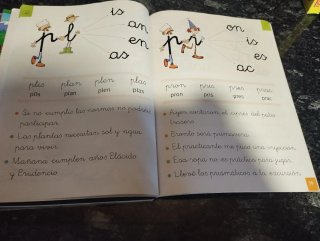 pl
is
an
en
as
plis
plan
plen
plas
plis
plan
plen
plas
Si no cumplís las normas no podréis
participar.
Las plantas necesitan sol y agua
para vivir.
Mañana cumplen años Plácido
y Prudencio.
pr
on
is
es
ac
pron
pris
pres
prac
pron
pris
pres
prac
Ayer cortaron el césped del patio
trasero.
Pronto será primavera.
El practicante me puso una inyección.
Esa ropa no es práctica para jugar.
Llevé los prismáticos de la excursión.